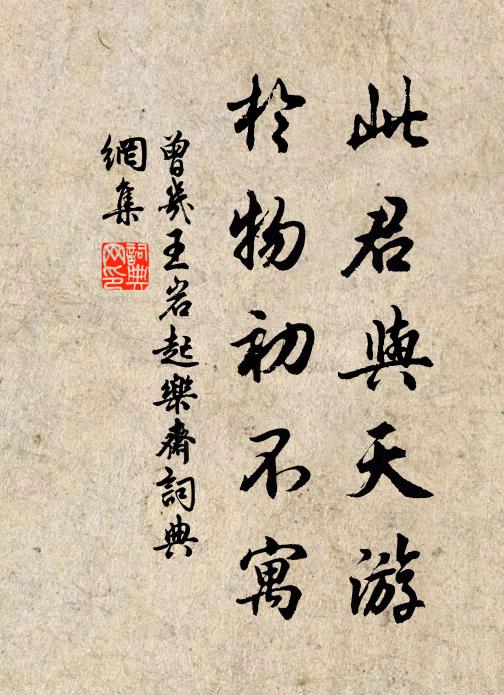 此君與天游
於物初不寓
曾幾王岩起樂齋詞典
網集
詞典
网印